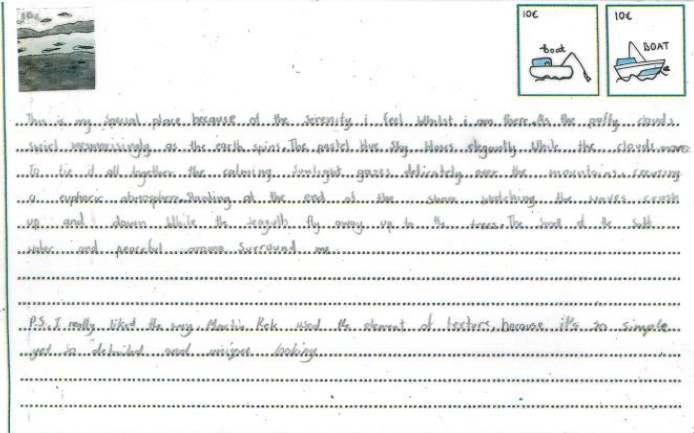 10€
10€
10€
Boat
BOAT
This is my special place because of the serenity i feel whilst i am there. As the puffy clouds
swirl mesmorisingly as the earth spins. The pastel blue sky blows elegantly while the clouds move.
To tie it all together the calming sunlight gazes delicately over the mountains, creating
a euphoric atmosphere. Standing at the end of the shore watching the waves crash
up and down while the seagulls fly away up to the trees. The smell of the salt
water and peaceful aroma surround me.
P.S. I really liked the way, Martin Kek used the element of texture, because it's so simple
yet so detailed and unique looking